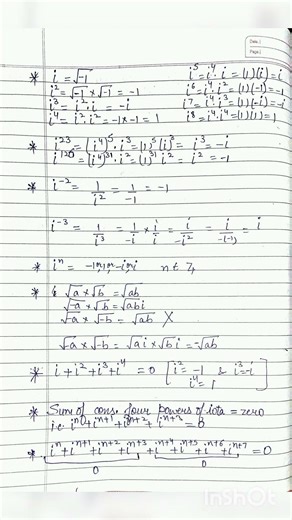 Date
Page
* i = √-1
i² = √-1 × √-1 = -1
i³ = i²·i = -i
i⁴ = i²·i² = -1×-1 = 1
i⁵ = i⁴·i = (1)(i) = i
i⁶ = i⁴·i² = (1)(-1) = -1
i⁷ = i⁴·i³ = (1)(-i) = -i
i⁸ = i⁴·i⁴ = (1)(1) = 1
* i²³ = (i⁴)⁵·i³ = (1)⁵(i)³ = i³ = -i
= (i⁴)³¹·i² = (1)³¹ i² = i² = -1
* i⁻² = 1/i² = 1/-1 = -1
i⁻³ = 1/i³ = 1/-i × i/i = i/-i² = i/-(-1) = i
* iⁿ = -1, 1, -i, i n ∈ Z
* √a × √b = √ab
√-a × √b = √ab i
√-a × √-b = √ab X
√-a × √-b = √a i × √b i = -√ab
* i + i² + i³ + i⁴ = 0 [i² = -1 & i³ = -i
i⁴ = 1]
* Sum of cons. four powers of iota = zero
i.e. iⁿ + iⁿ⁺¹ + iⁿ⁺² + iⁿ⁺³ = 0
* iⁿ + iⁿ⁺¹ + iⁿ⁺² + iⁿ⁺³ + iⁿ⁺⁴ + iⁿ⁺⁵ + iⁿ⁺⁶ + iⁿ⁺⁷ = 0
0 0
InShot